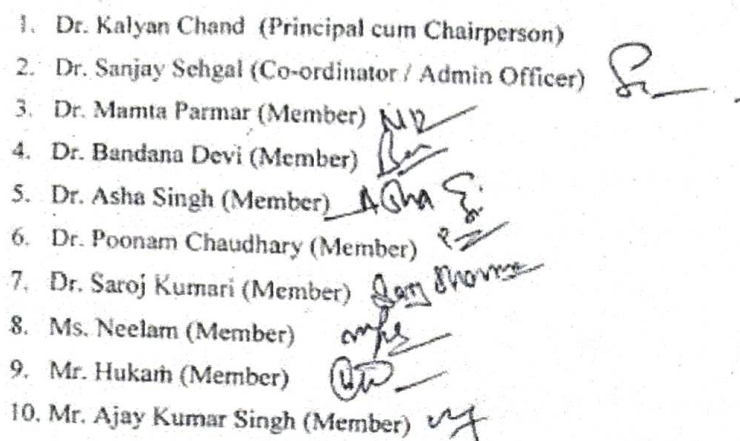 1. Dr. Kalyan Chand (Principal cum Chairperson)
2. Dr. Sanjay Sehgal (Co-ordinator / Admin Officer)
3. Dr. Mamta Parmar (Member)
4. Dr. Bandana Devi (Member)
5. Dr. Asha Singh (Member) Asha
6. Dr. Poonam Chaudhary (Member)
7. Dr. Saroj Kumari (Member) Sharma
8. Ms. Neelam (Member)
9. Mr. Hukam (Member)
10. Mr. Ajay Kumar Singh (Member)